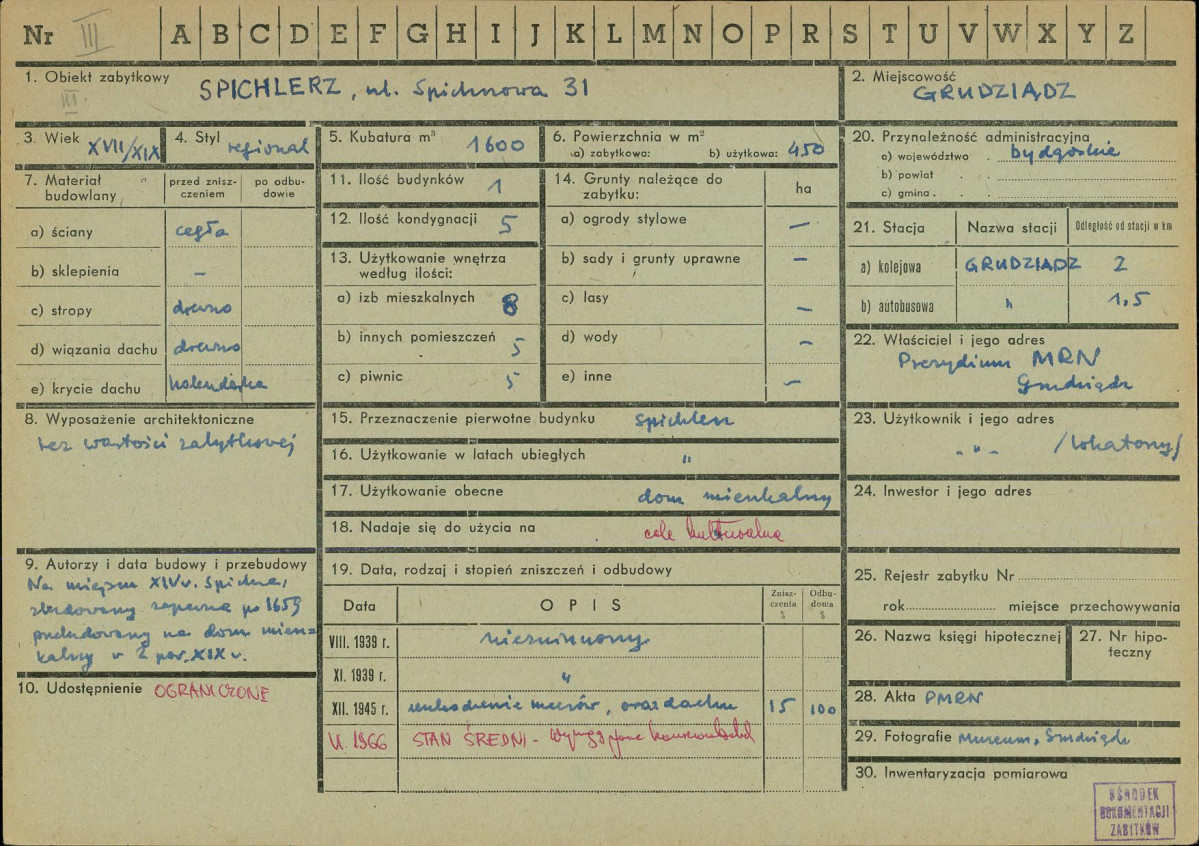 Nr III A B C D E F G H I J K L M N O P R S T U V W X Y Z
1. Obiekt zabytkowy SPICHLERZ, ul. Spichrzowa 31
III.
2. Miejscowość
GRUDZIĄDZ
3. Wiek XVII/XIX
4. Styl regional
5. Kubatura m³ 1600
6. Powierzchnia w m²
a) zabytkowa: b) użytkowa: 450
20. Przynależność administracyjna
a) województwo bydgoskie
b) powiat
c) gmina
7. Materiał budowlany
przed znisz-
czeniem
po odbu-
dowie
a) ściany cegła
b) sklepienia –
c) stropy drewno
d) wiązania dachu drewno
e) krycie dachu holenderka
11. Ilość budynków 1
12. Ilość kondygnacji 5
13. Użytkowanie wnętrza
według ilości:
a) izb mieszkalnych 8
b) innych pomieszczeń 5
c) piwnic 5
14. Grunty należące do
zabytku:
ha
a) ogrody stylowe –
b) sady i grunty uprawne –
c) lasy –
d) wody –
e) inne –
21. Stacja Nazwa stacji Odległość od stacji w km
a) kolejowa GRUDZIĄDZ 2
b) autobusowa " 1,5
22. Właściciel i jego adres
Prezydium MRN
Grudziądz
8. Wyposażenie architektoniczne
bez wartości zabytkowej
15. Przeznaczenie pierwotne budynku spichlerz
16. Użytkowanie w latach ubiegłych "
17. Użytkowanie obecne dom mieszkalny
18. Nadaje się do użycia na cele kulturalne
23. Użytkownik i jego adres
" " /lokatorzy/
24. Inwestor i jego adres
9. Autorzy i data budowy i przebudowy
Na miejscu XIV w. spichrza,
zbudowany zapewne po 1659
przebudowany na dom miesz-
kalny w 2 poł. XIX w.
10. Udostępnienie OGRANICZONE
19. Data, rodzaj i stopień zniszczeń i odbudowy
Data OPIS
Znisz-
czenia
%
Odbu-
dowa
%
VIII. 1939 r. niezniszczony
XI. 1939 r. "
XII. 1945 r. uszkodzenie murów, oraz dachu 15 100
VI. 1966 STAN ŚREDNI - Wymaga
25. Rejestr zabytku Nr
rok miejsce przechowywania
26. Nazwa księgi hipotecznej
27. Nr hipo-
teczny
28. Akta PMRN
29. Fotografie Muzeum, Grudziądz
30. Inwentaryzacja pomiarowa
OŚRODEK
DOKUMENTACJI
ZABYTKÓW